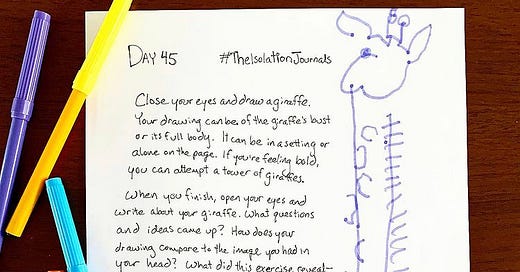 DAY 45 #TheIsolationJournals
Close your eyes and draw a giraffe.
Your drawing can be of the giraffe's bust
or its full body. It can be in a setting or
alone on the page. If you're feeling bold,
you can attempt a tower of giraffes.
When you finish, open your eyes and
write about your giraffe. What questions
and ideas came up? How does your
drawing compare to the image you had in
your head? What did this exercise reveal-